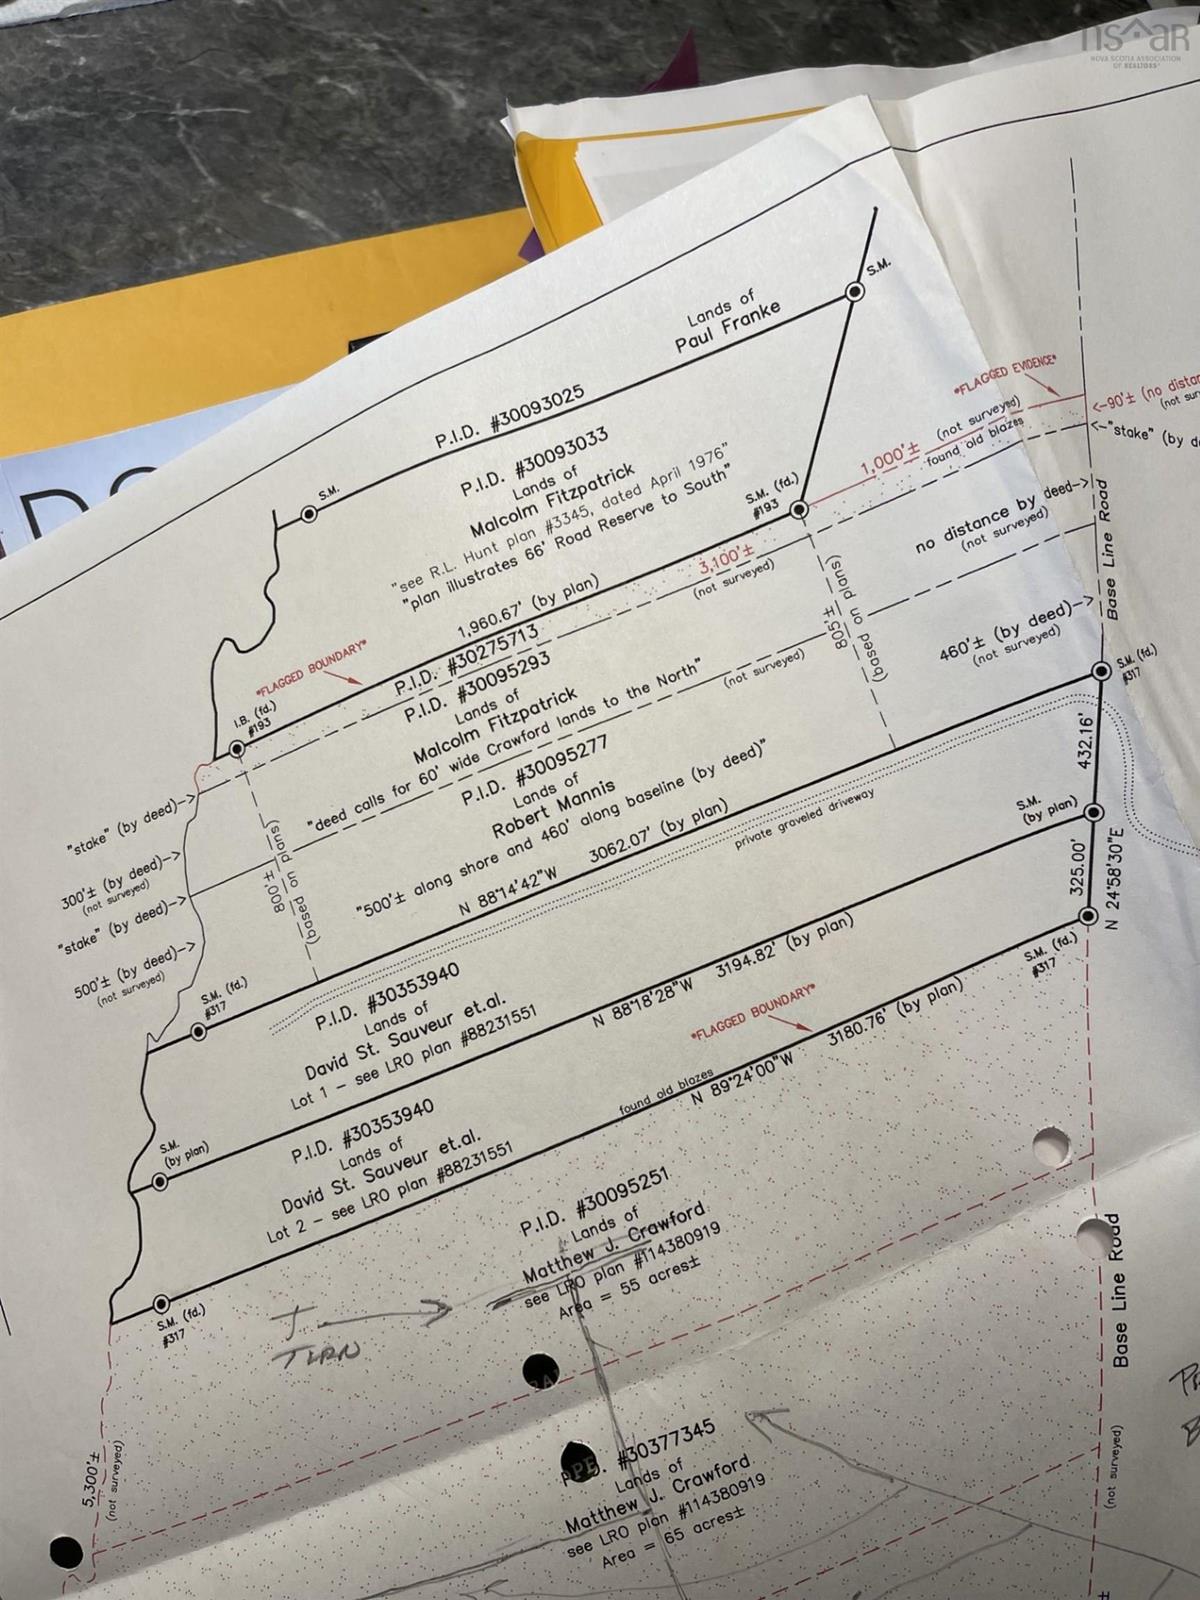 nsaar
NOVA SCOTIA ASSOCIATION
OF REALTORS®
Lands of
Paul Franke
S.M.
P.I.D. #30093025
S.M.
P.I.D. #30093033
Lands of
Malcolm Fitzpatrick
"see R.L. Hunt plan #3345, dated April 1976"
"plan illustrates 66' Road Reserve to South"
S.M. (fd.)
#193
*FLAGGED EVIDENCE*
1,000'±
(not surveyed)
found old blazes
<-90'± (no
(not
<-"stake" (by
no distance by deed->
(not surveyed)
Base Line Road
1,960.67' (by plan)
3,100'±
(not surveyed)
*FLAGGED BOUNDARY*
P.I.D. #30275713
P.I.D. #30095293
Lands of
Malcolm Fitzpatrick
"deed calls for 60' wide Crawford lands to the North"
(not surveyed)
805'±
(based on plans)
460'± (by deed)->
(not surveyed)
S.M. (fd.)
#317
I.B. (fd.)
#193
P.I.D. #30095277
Lands of
Robert Mannis
"500'± along shore and 460' along baseline (by deed)"
"stake" (by deed)->
300'± (by deed)->
(not surveyed)
"stake" (by deed)->
500'± (by deed)->
(not surveyed)
800'±
(based on plans)
N 88°14'42"W 3062.07' (by plan)
private graveled driveway
432.16'
S.M.
(by plan)
325.00'
N 24°58'30"E
S.M. (fd.)
#317
P.I.D. #30353940
Lands of
David St. Sauveur et.al.
Lot 1 - see LRO plan #88231551
N 88°18'28"W 3194.82' (by plan)
S.M. (fd.)
#317
*FLAGGED BOUNDARY*
S.M.
(by plan)
P.I.D. #30353940
Lands of
David St. Sauveur et.al.
Lot 2 - see LRO plan #88231551
found old blazes
N 89°24'00"W 3180.76' (by plan)
S.M. (fd.)
#317
P.I.D. #30095251
Lands of
Matthew J. Crawford
see LRO plan #114380919
Area = 55 acres±
Base Line Road
5,300'±
(not surveyed)
#30377345
Lands of
Matthew J. Crawford
see LRO plan #114380919
Area = 65 acres±
(not surveyed)